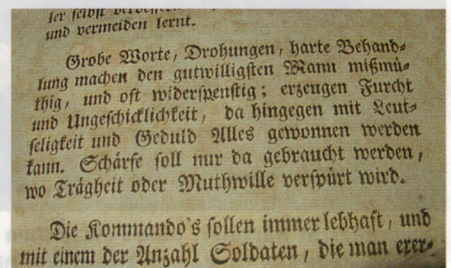 ler selbst verbessern
und vermeiden lernt.
Grobe Worte, Drohungen, harte Behand-
lung machen den gutwilligsten Mann mißmü-
thig, und oft widerspenstig; erzeugen Furcht
und Ungeschicklichkeit, da hingegen mit Leut-
seligkeit und Geduld Alles gewonnen werden
kann. Schärfe soll nur da gebraucht werden,
wo Trägheit oder Muthwille verspürt wird.
Die Kommando's sollen immer lebhaft, und
mit einem der Anzahl Soldaten, die man exer-